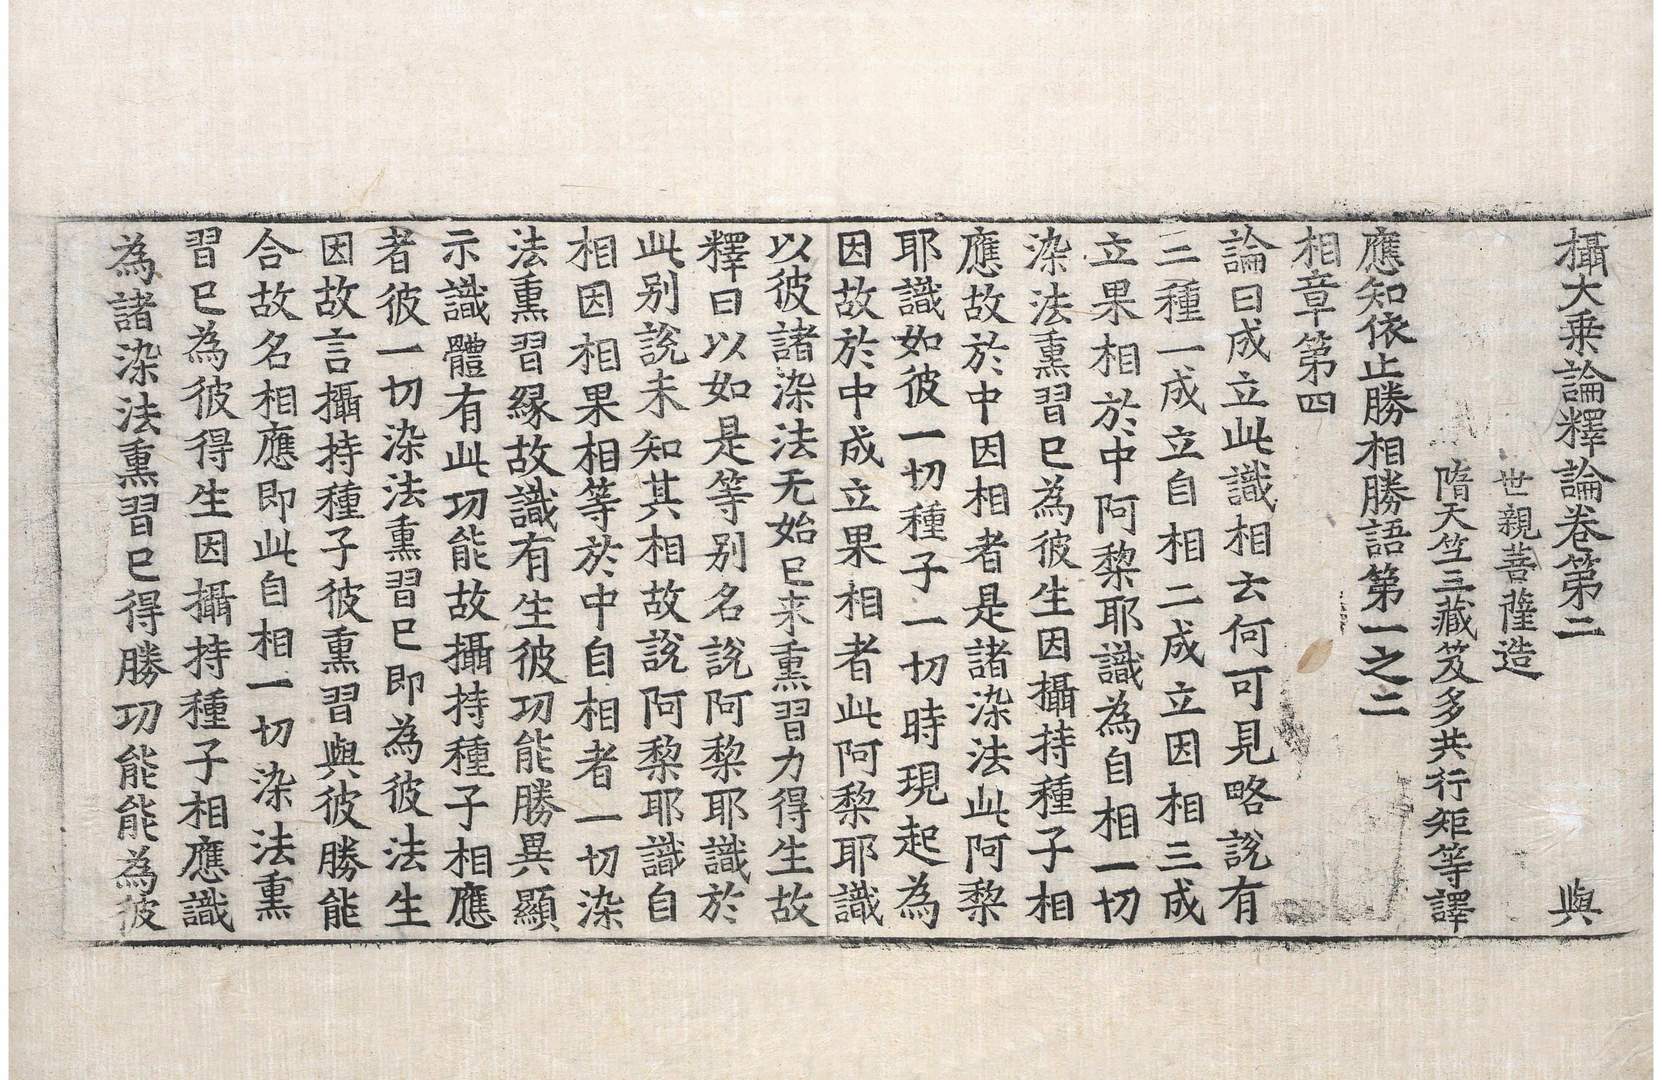 攝大乗論釋論卷第二 與
世親菩薩造
隋天竺三藏笈多共行矩等譯
應知依止勝相勝語第一之二
相章第四
論曰成立此識相云何可見略說有
三種一成立自相二成立因相三成
立果相於中阿黎耶識為自相一切
染法熏習已為彼生因攝持種子相
應故於中因相者是諸染法此阿黎
耶識如彼一切種子一切時現起為
因故於中成立果相者此阿黎耶識
以彼諸染法无始已来熏習力得生故
釋曰以如是等別名說阿黎耶識於
此別說未知其相故說阿黎耶識自
相因相果相等於中自相者一切染
法熏習緣故識有生彼功能勝異顯
示識體有此功能故攝持種子相應
者彼一切染法熏習已即為彼法生
因故言攝持種子彼熏習與彼勝能
合故名相應即此自相一切染法熏
習已為彼得生因攝持種子相應識
為諸染法熏習已得勝功能能為彼